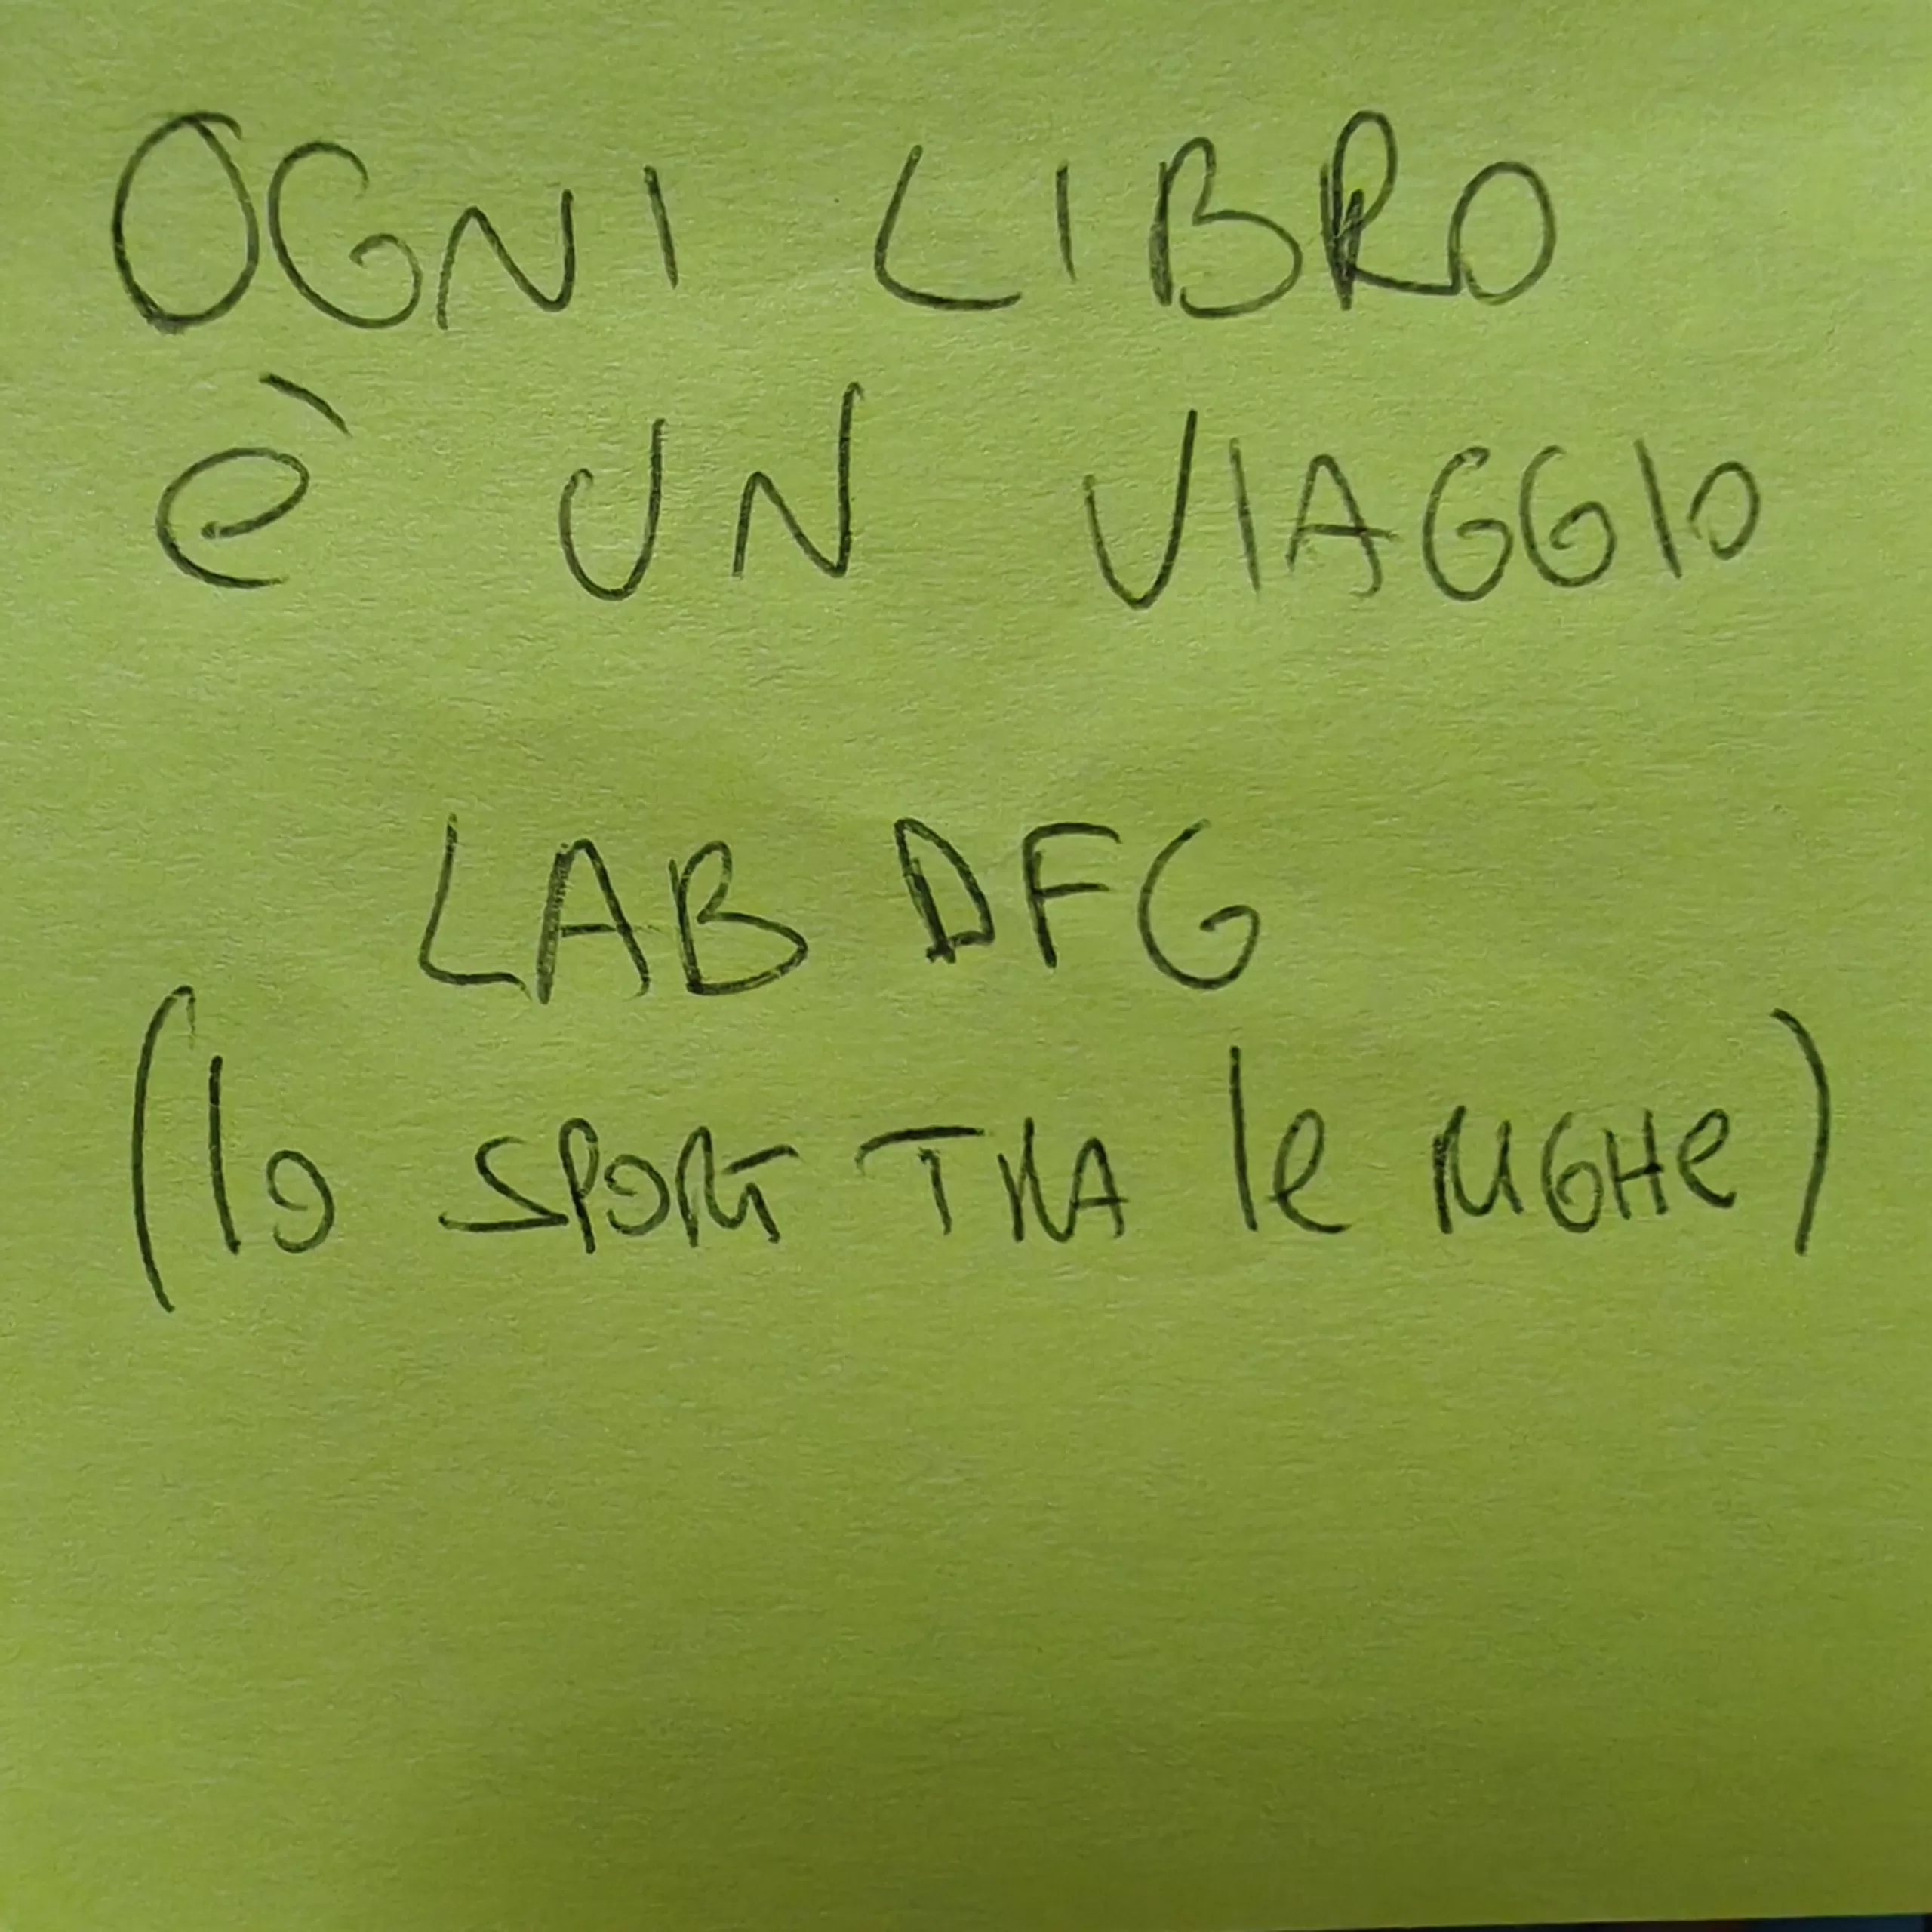 OGNI LIBRO
è UN VIAGGIO
LAB DFG
(lo SPORT TRA le RIGHe)